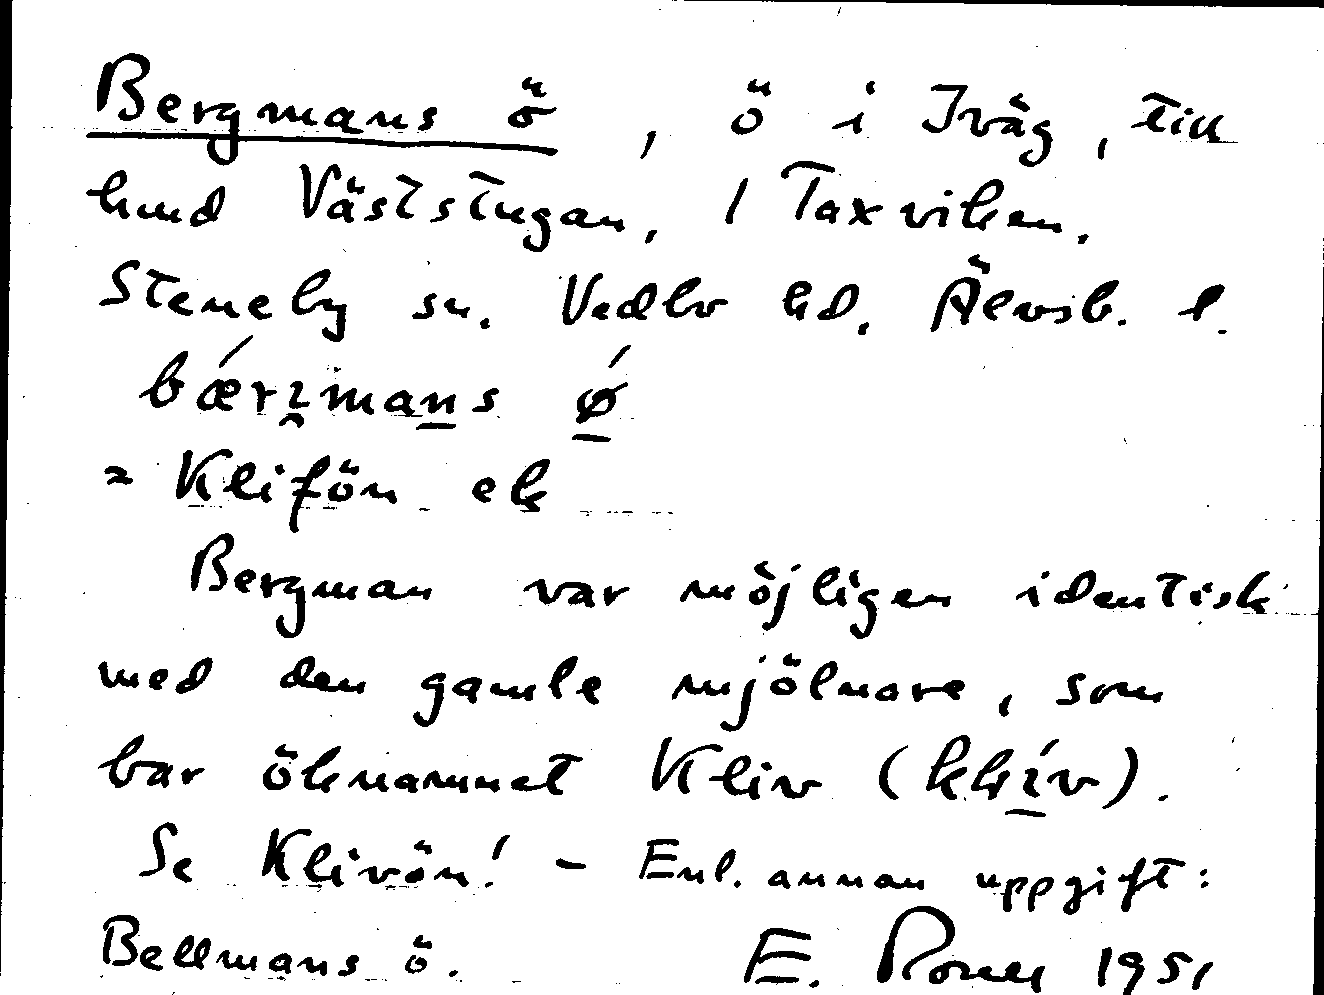 Bergmans ö, ö i Iväg, till
hmd Väststugan, / Taxviken.
Steneby sn. Vedbo hd. Älvsb. l.
bǽrʒmans ǿ
= Klifön ek
Bergman var möjligen identisk
med den gamle mjölnare, som
bar öknamnet Kliv (klív).
Se Klivön! – Enl. annan uppgift:
Bellmans ö. E. 1951